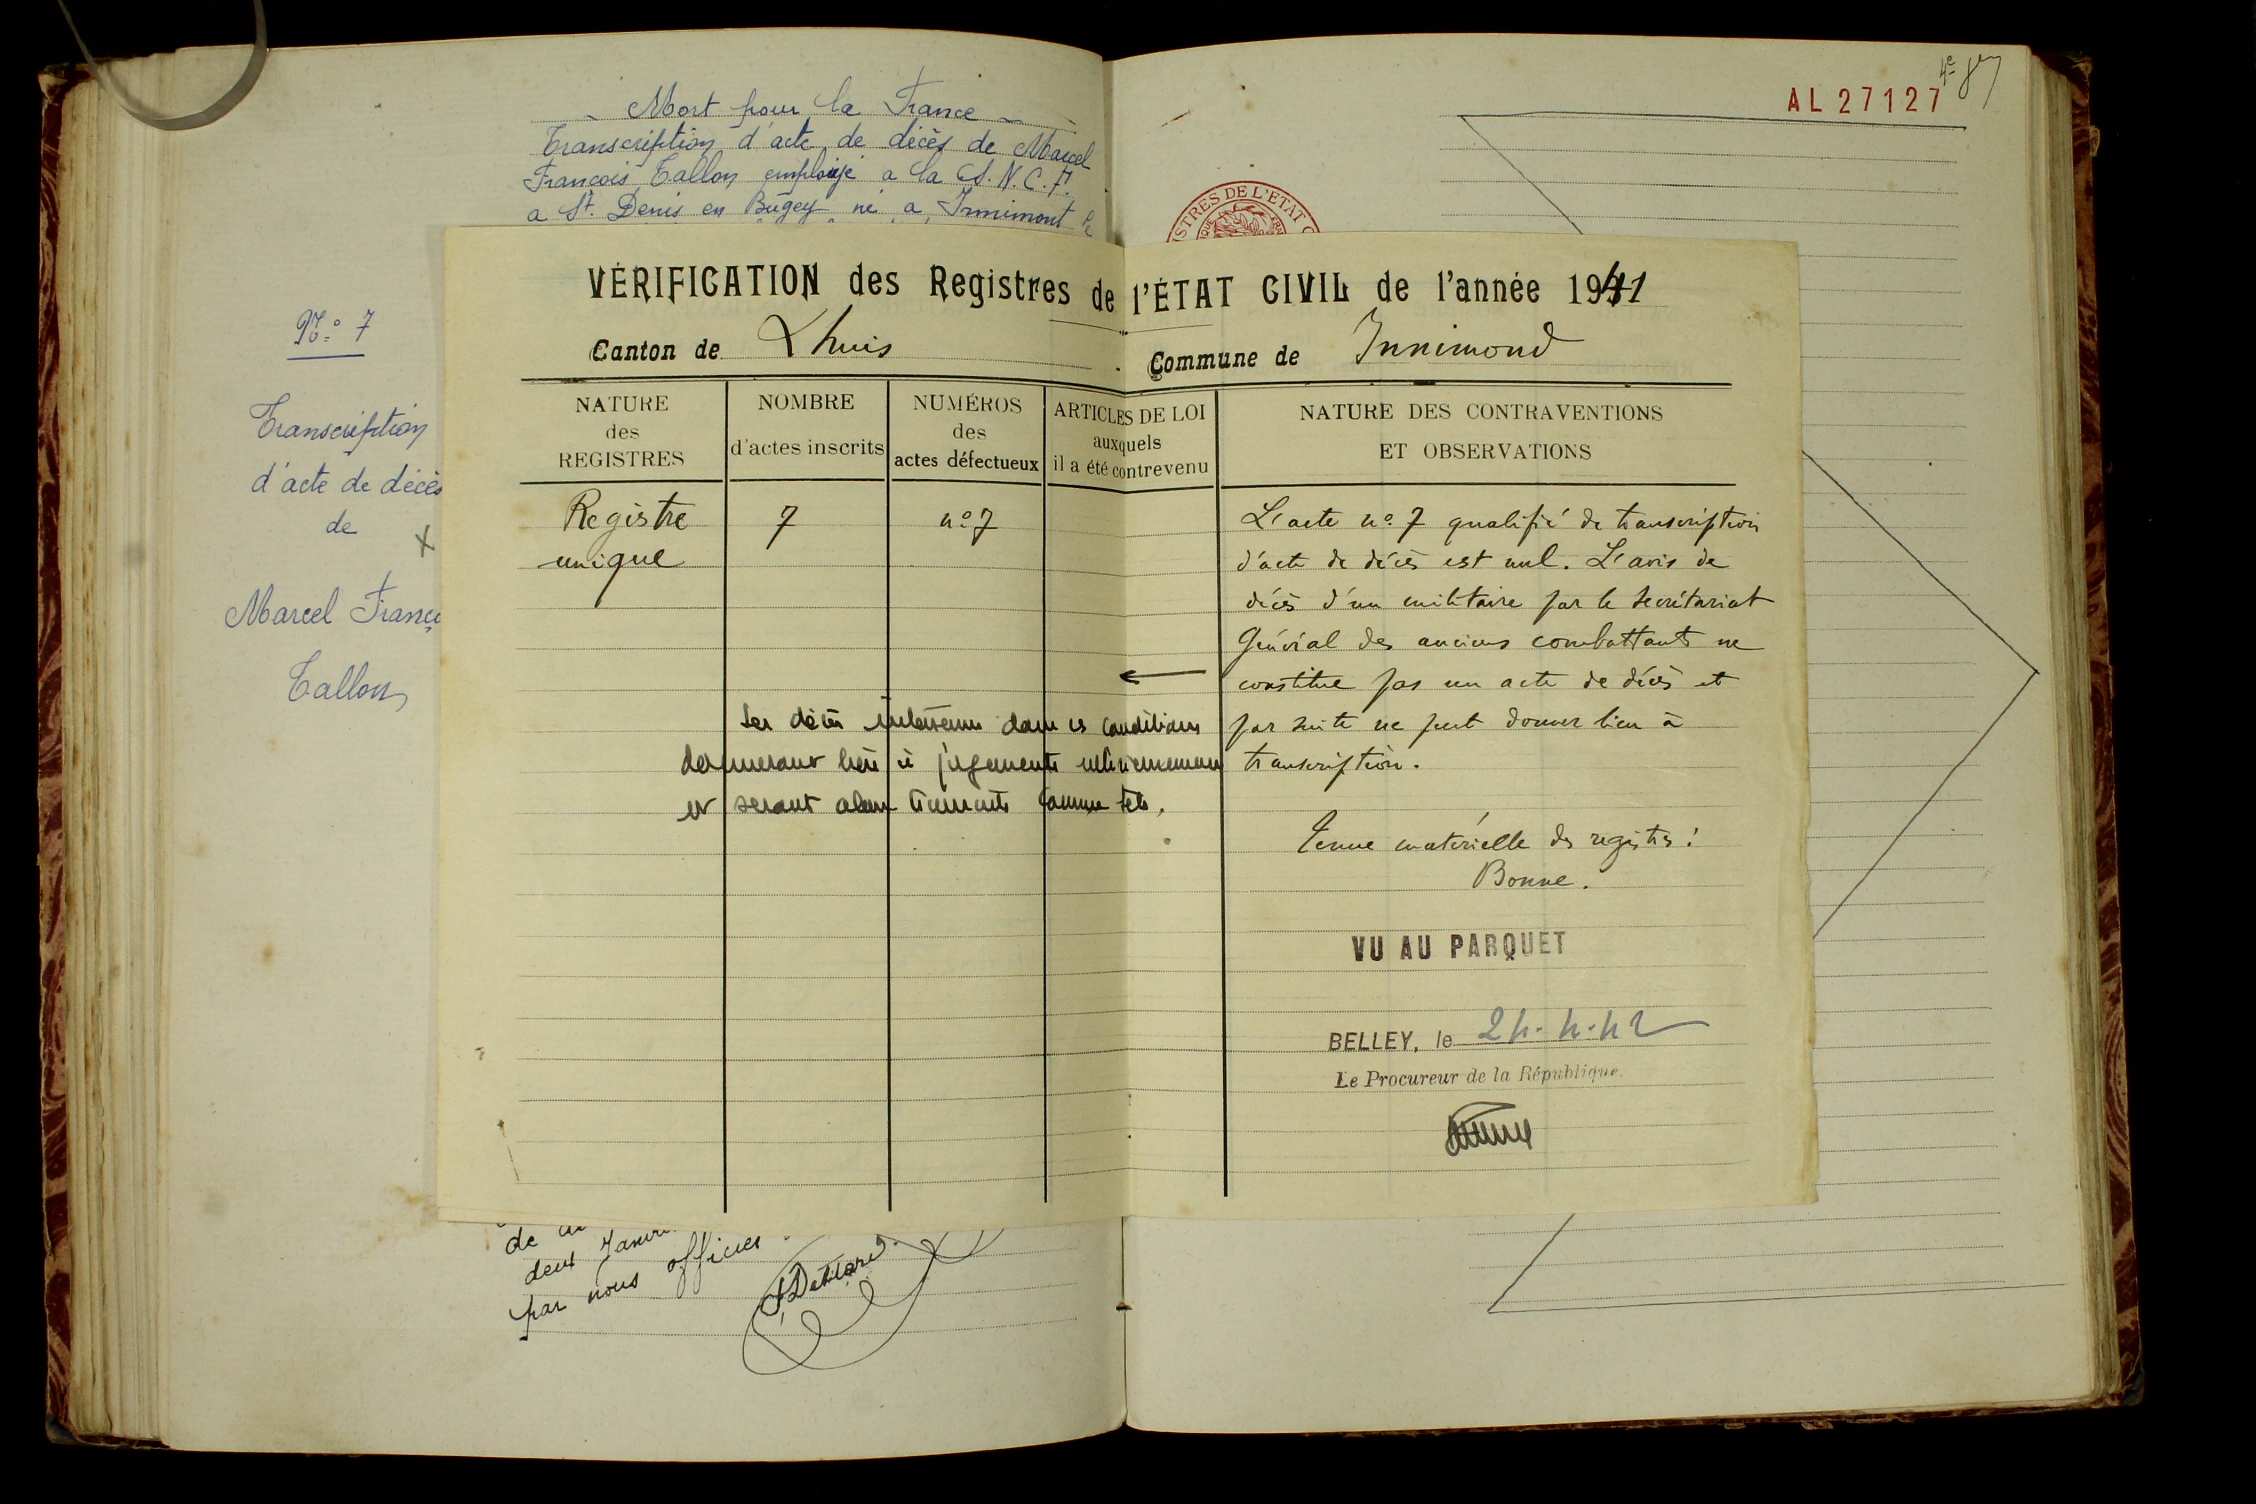 - Mort pour la France -
Transcription d'acte de décès de Marcel
François Tallon employé a la S.N.C.F.
a St. Denis en Bugey né a Innimont le
N° 7
Transcription
d'acte de décès
de
Marcel Franço
Tallon
AL 27127
STRES DE L'ETAT C
VÉRIFICATION des Registres de l'ÉTAT CIVIL de l'année 1941
Canton de Lhuis Commune de Innimond
NATURE
des
REGISTRES
NOMBRE
d'actes inscrits
NUMÉROS
des
actes défectueux
ARTICLES DE LOI
auxquels
il a été contrevenu
NATURE DES CONTRAVENTIONS
ET OBSERVATIONS
Registre
unique
7
n° 7
L'acte n° 7 qualifié de transcription
d'acte de décès est nul. L'avis de
décès d'un militaire par le Secrétariat
Général des anciens combattants ne
constitue pas un acte de décès et
par suite ne peut donner lieu à
transcription.
Les décès intervenus dans ces conditions
donneront lieu à jugements ultérieurement
et seront alors transcrits comme tels.
Tenue matérielle des registres :
Bonne.
VU AU PARQUET
BELLEY, le 24.4.42
Le Procureur de la République.
de
deux Janvi
par nous officier